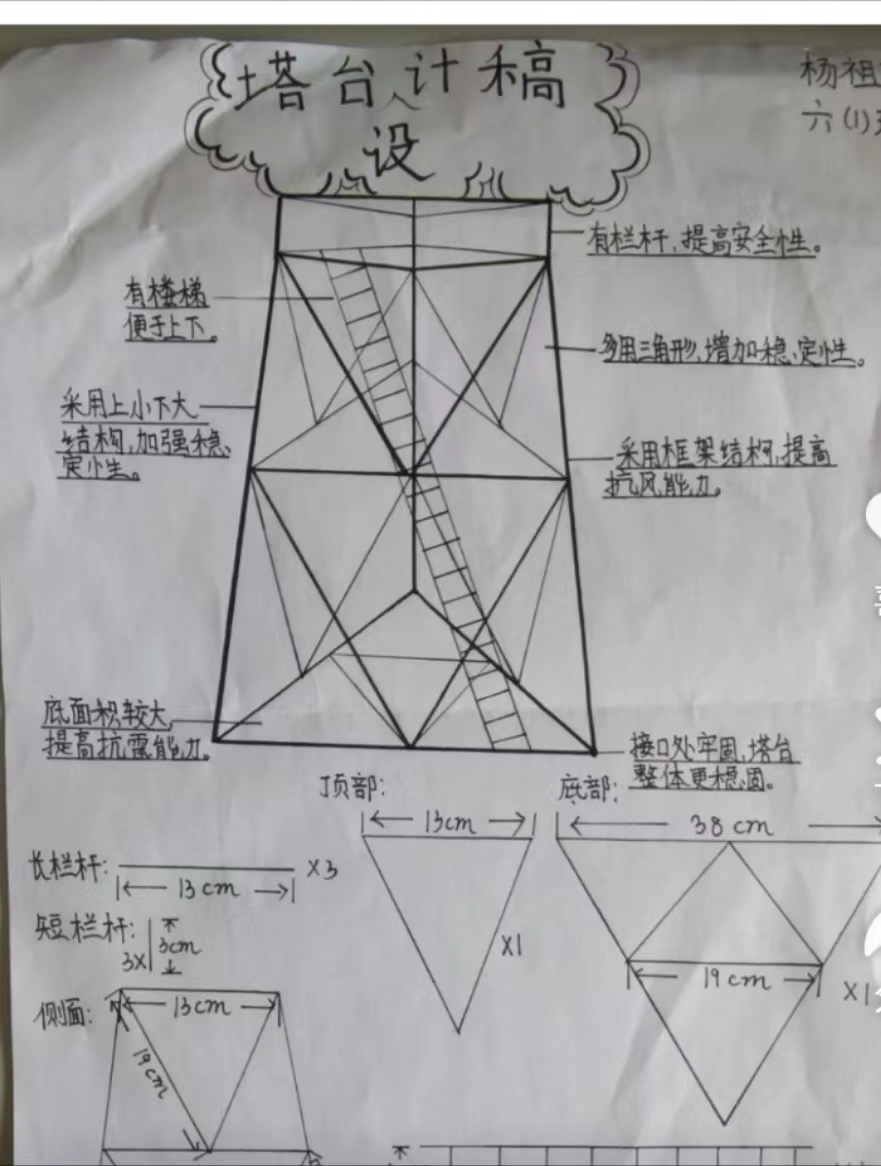 塔台计稿
设
杨祖
六(1)
有栏杆,提高安全性。
有楼梯
便于上下。
多用三角形,增加稳定性。
采用上小下大
结构,加强稳
定性。
采用框架结构,提高
抗风能力。
底面积较大,
提高抗震能力。
接口处牢固,塔台
整体更稳固。
顶部:
底部:
13cm
38cm
长栏杆:
×3
13cm
短栏杆:
3cm
3×
×1
19cm
×1
侧面:
13cm
19cm